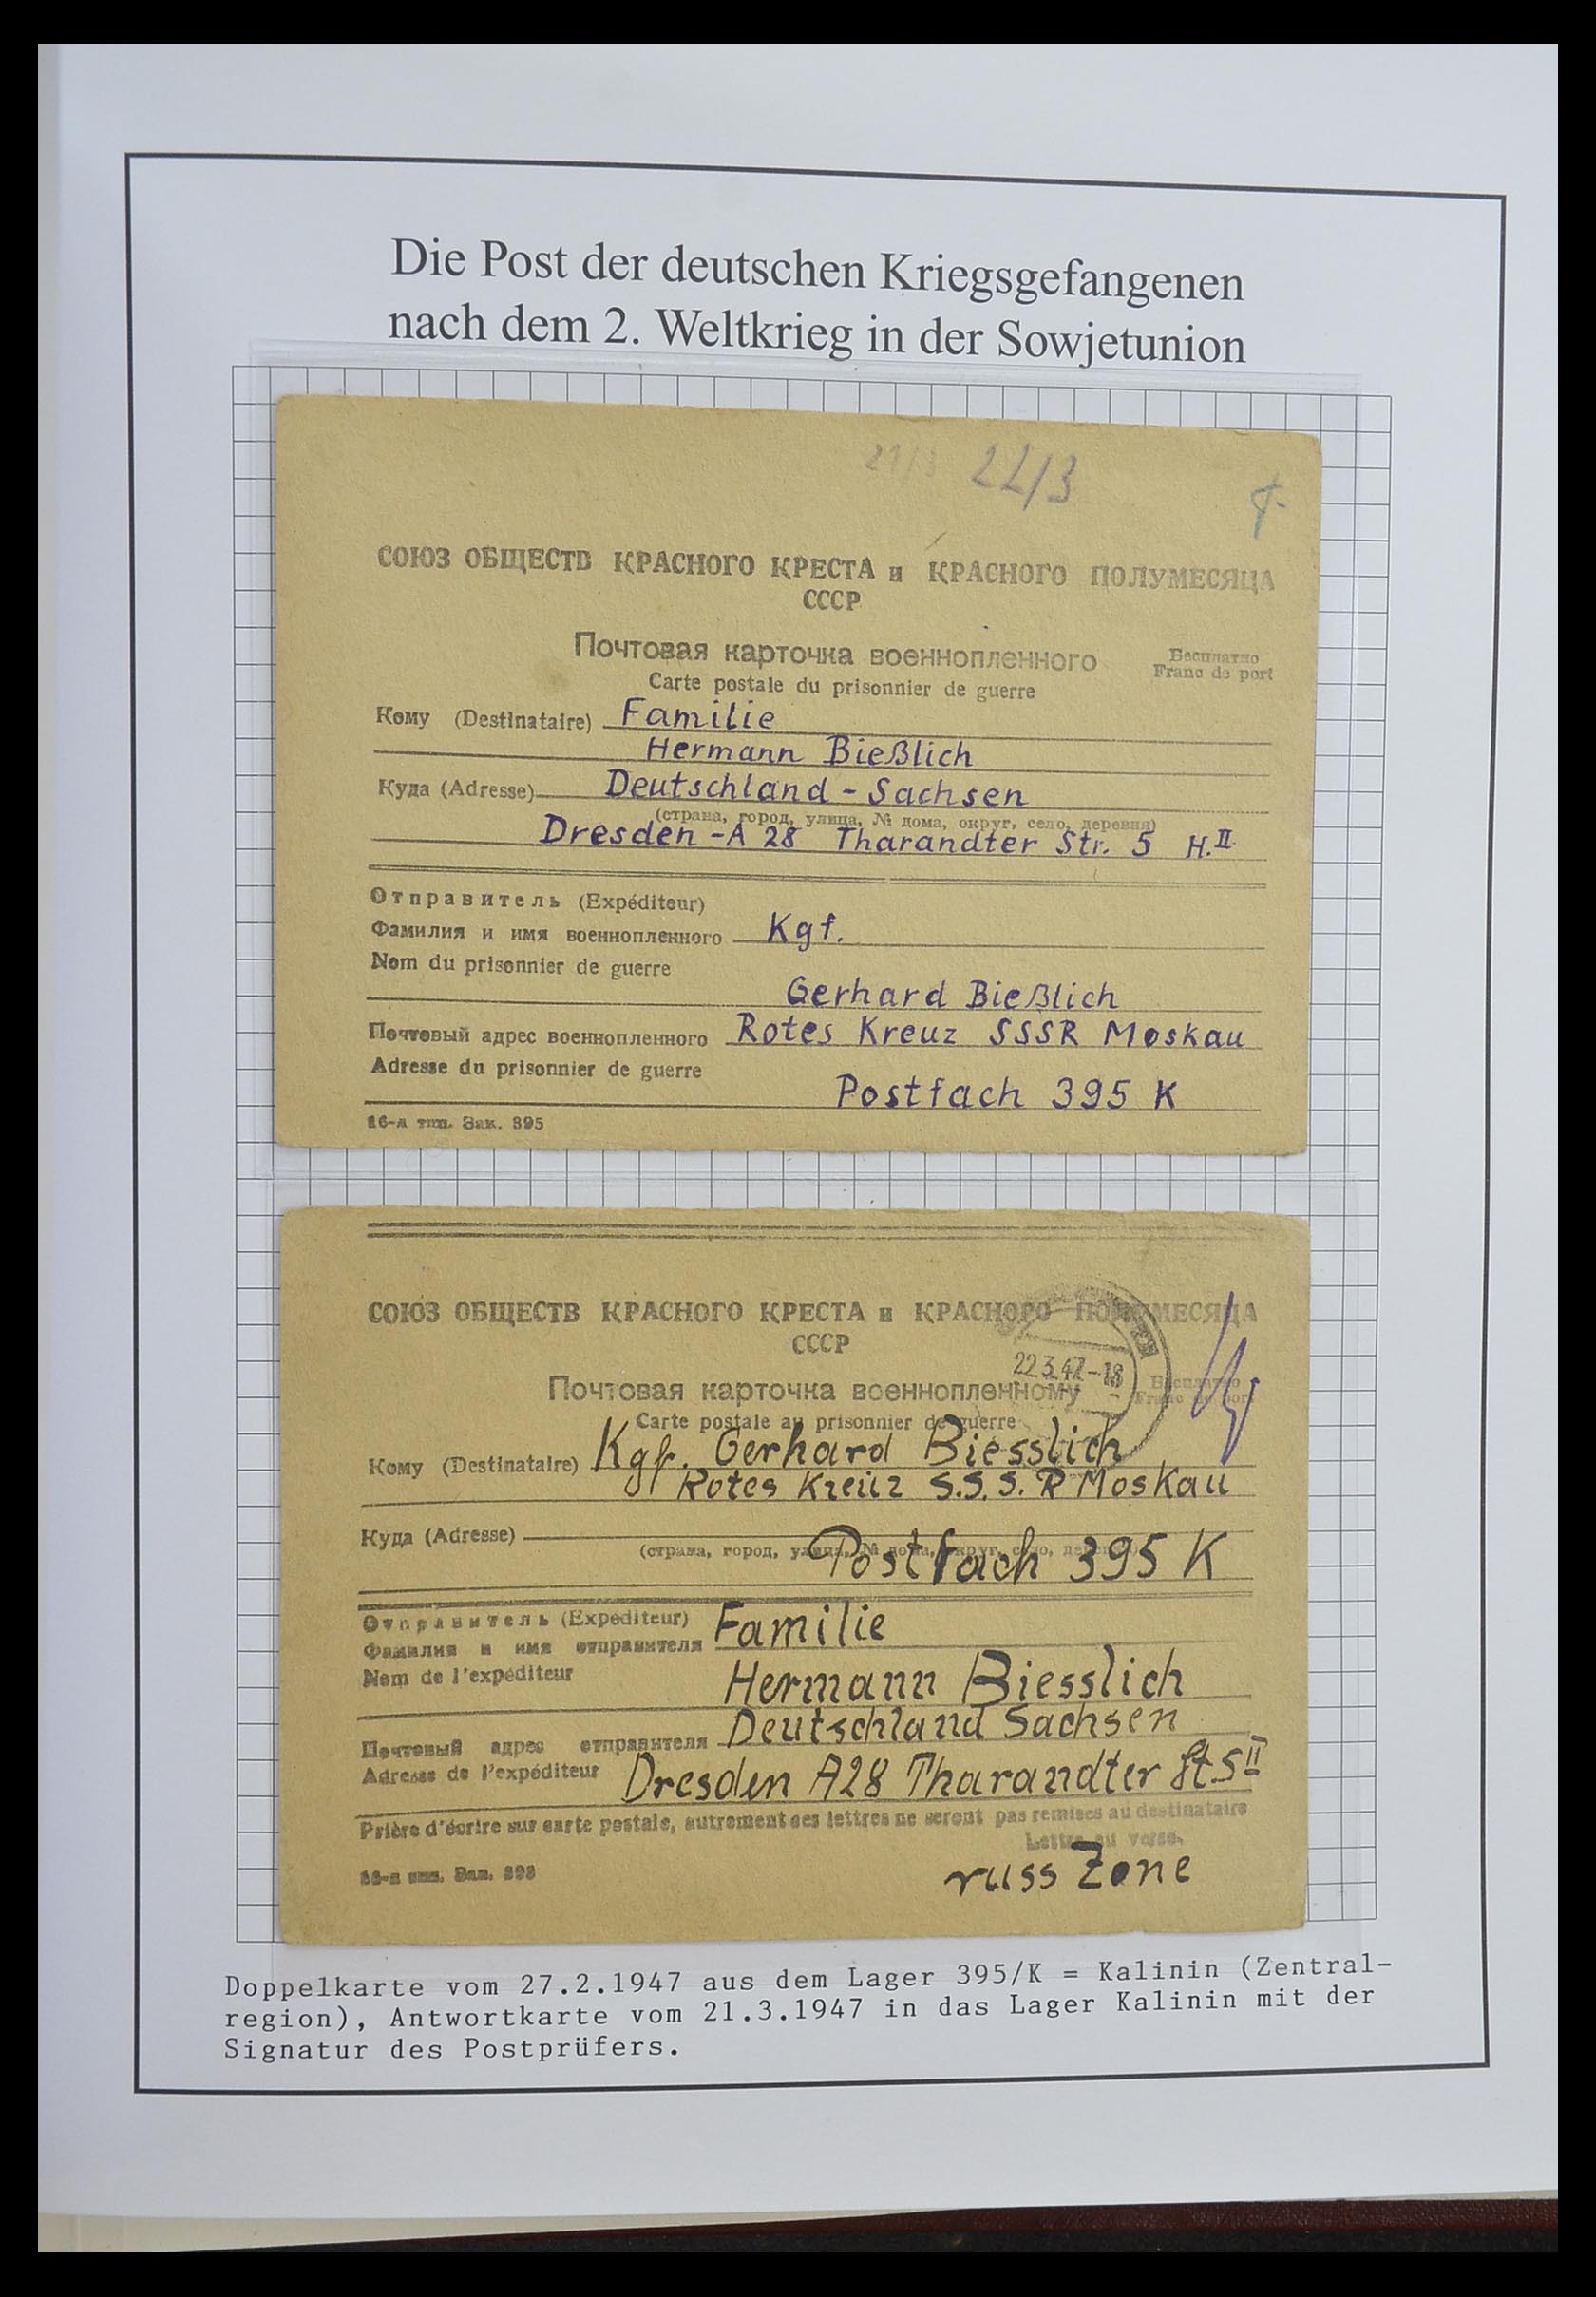 Die Post der deutschen Kriegsgefangenen
nach dem 2. Weltkrieg in der Sowjetunion
21/3 22/3
СОЮЗ ОБЩЕСТВ КРАСНОГО КРЕСТА и КРАСНОГО ПОЛУМЕСЯЦА
СССР
Почтовая карточка военнопленного
Бесплатно
Franc de port
Carte postale du prisonnier de guerre
Кому (Destinataire) Familie
Hermann Bießlich
Куда (Adresse) Deutschland - Sachsen
(страна, город, улица, № дома, округ, село, деревня)
Dresden - A 28 Tharandter Str. 5 H.II
Отправитель (Expéditeur)
Фамилия и имя военнопленного Kgf.
Nom du prisonnier de guerre
Gerhard Bießlich
Почтовый адрес военнопленного Rotes Kreuz SSSR Moskau
Adresse du prisonnier de guerre
Postfach 395 K
16-я тип. Зак. 895
СОЮЗ ОБЩЕСТВ КРАСНОГО КРЕСТА и КРАСНОГО ПОЛУМЕСЯЦА
СССР
22.3.47-18
Почтовая карточка военнопленному
Бесплатно
Franc de port
Carte postale au prisonnier de guerre
Кому (Destinataire) Kgf. Gerhard Biesslich
Rotes Kreuz S.S.S.R Moskau
Куда (Adresse)
(страна, город, улица, № дома, округ, село, деревня)
Postfach 395 K
Отправитель (Expéditeur) Familie
Фамилия и имя отправителя
Nom de l'expéditeur
Hermann Biesslich
Почтовый адрес отправителя Deutschland Sachsen
Adresse de l'expéditeur Dresden A28 Tharandter St. 5 II
Prière d'écrire sur carte postale, autrement ces lettres ne seront pas remises au destinataire
Lettre au verso.
16-я тип. Зак.
russ Zone
Doppelkarte vom 27.2.1947 aus dem Lager 395/K = Kalinin (Zentral-
region), Antwortkarte vom 21.3.1947 in das Lager Kalinin mit der
Signatur des Postprüfers.